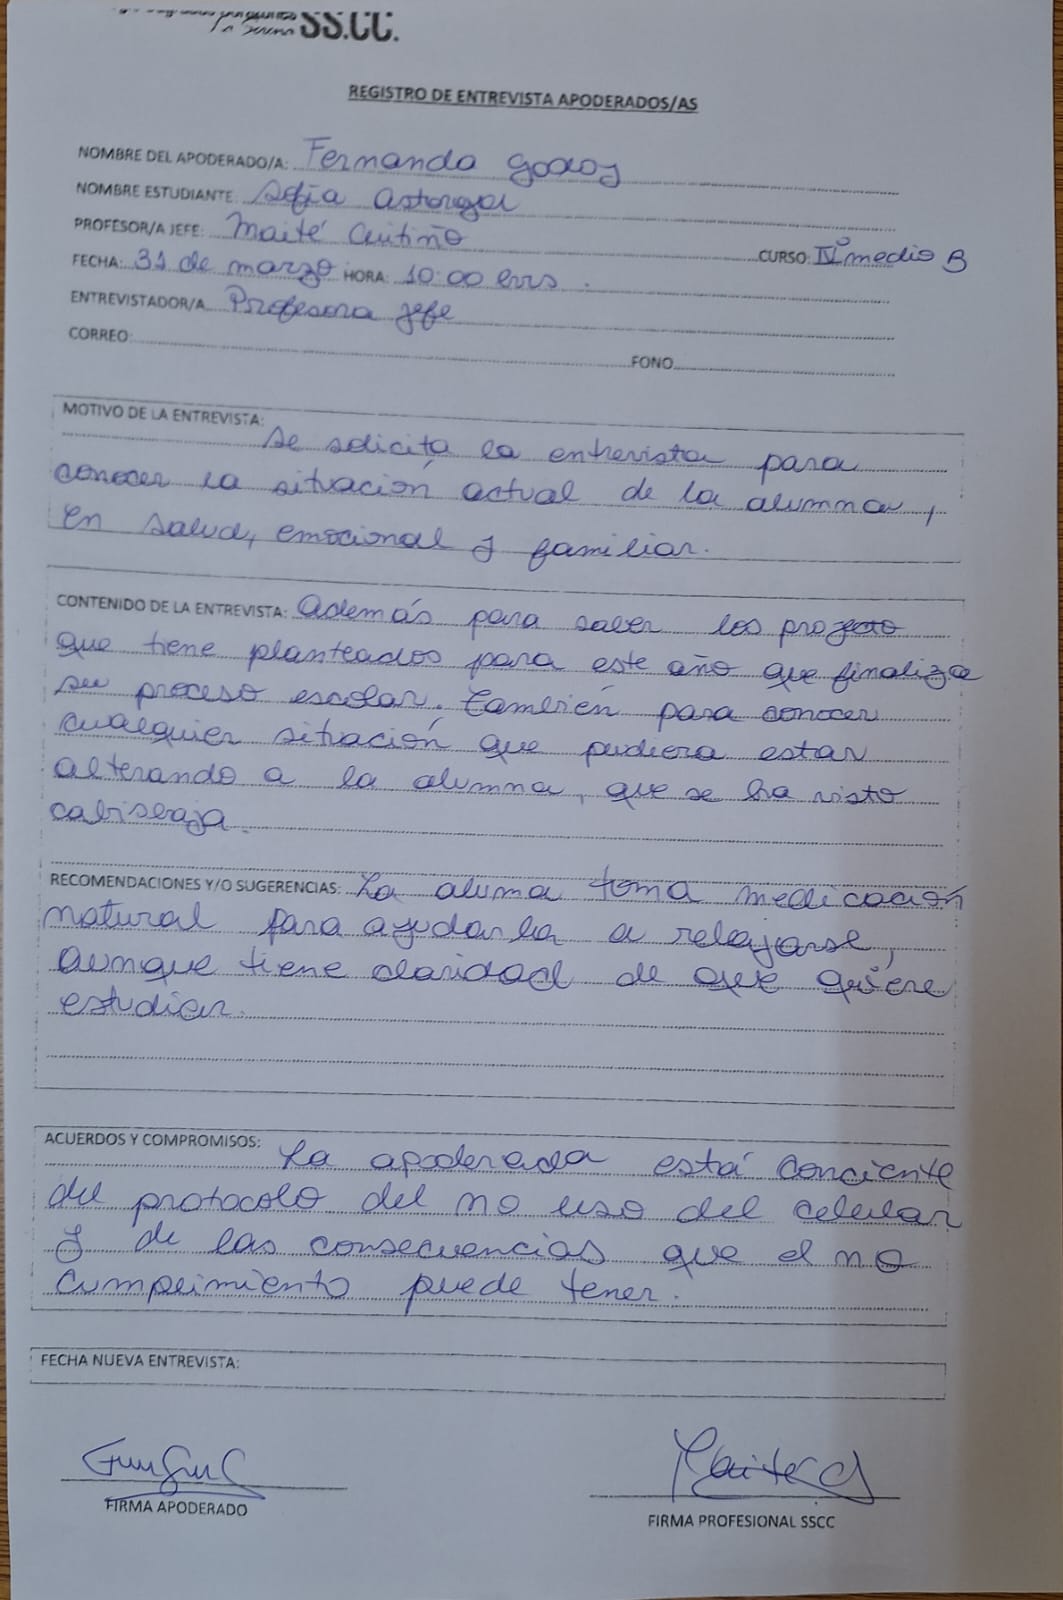 SS.CC.
REGISTRO DE ENTREVISTA APODERADOS/AS
NOMBRE DEL APODERADO/A: Fernanda Godoy
NOMBRE ESTUDIANTE: Sofía Astorga
PROFESOR/A JEFE: Maité Cutiño CURSO: IV° medio B
FECHA: 31 de marzo HORA: 10:00 hrs.
ENTREVISTADOR/A Profesora jefe
CORREO: FONO
MOTIVO DE LA ENTREVISTA:
Se solicita la entrevista para
conocer la situación actual de la alumna,
en salud, emocional y familiar.
CONTENIDO DE LA ENTREVISTA: Además para saber los proyecto
que tiene planteados para este año que finaliza
su proceso escolar. También para conocer
cualquier situación que pudiera estar
alterando a la alumna, que se ha visto
cabisbaja.
RECOMENDACIONES Y/O SUGERENCIAS: La aluma toma medicación
natural para ayudarla a relajarse,
aunque tiene claridad de que quiere
estudiar.
ACUERDOS Y COMPROMISOS:
La apoderada está conciente
del protocolo del no uso del celular
y de las consecuencias que el no
cumplimiento puede tener.
FECHA NUEVA ENTREVISTA:
FIRMA APODERADO
FIRMA PROFESIONAL SSCC